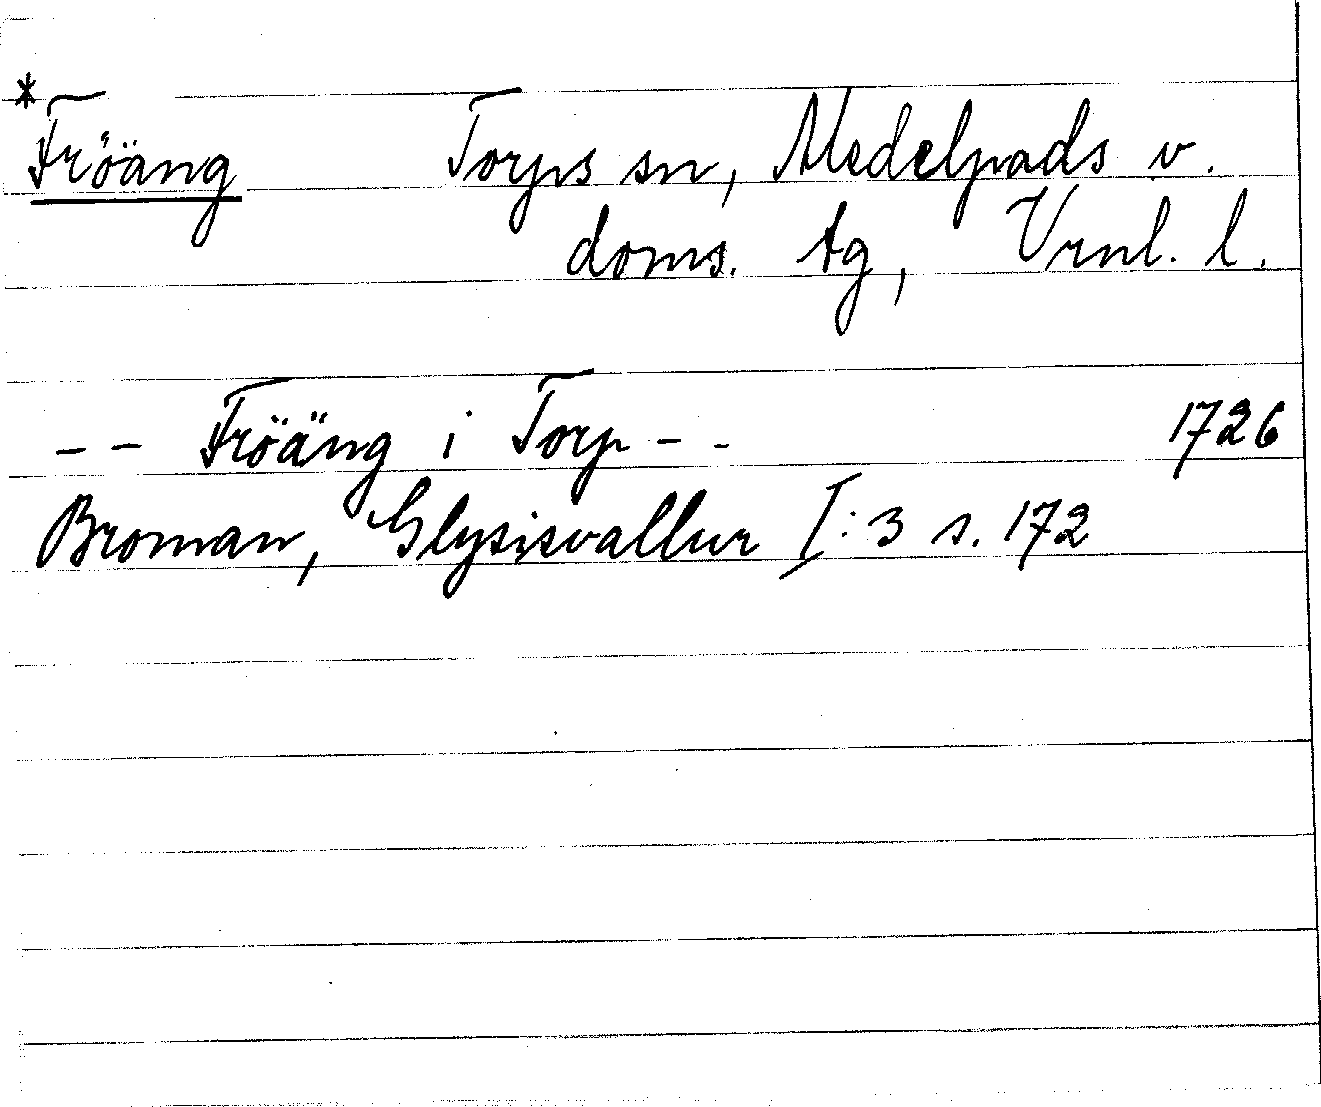 * Fröäng Torps sn, Medelpads v.
doms. tg, Vrnl. l.
-- Fröäng i Torp -- 1726
Broman, Glysisvallur I:3 s. 172